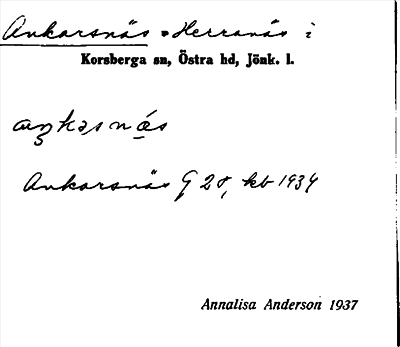 Ankarsnäs = Herranäs i
Korsberga sn, Östra hd, Jönk. l.
aŋkasnǽs
Ankarsnäs G 28, kb 1934
Annalisa Anderson 1937